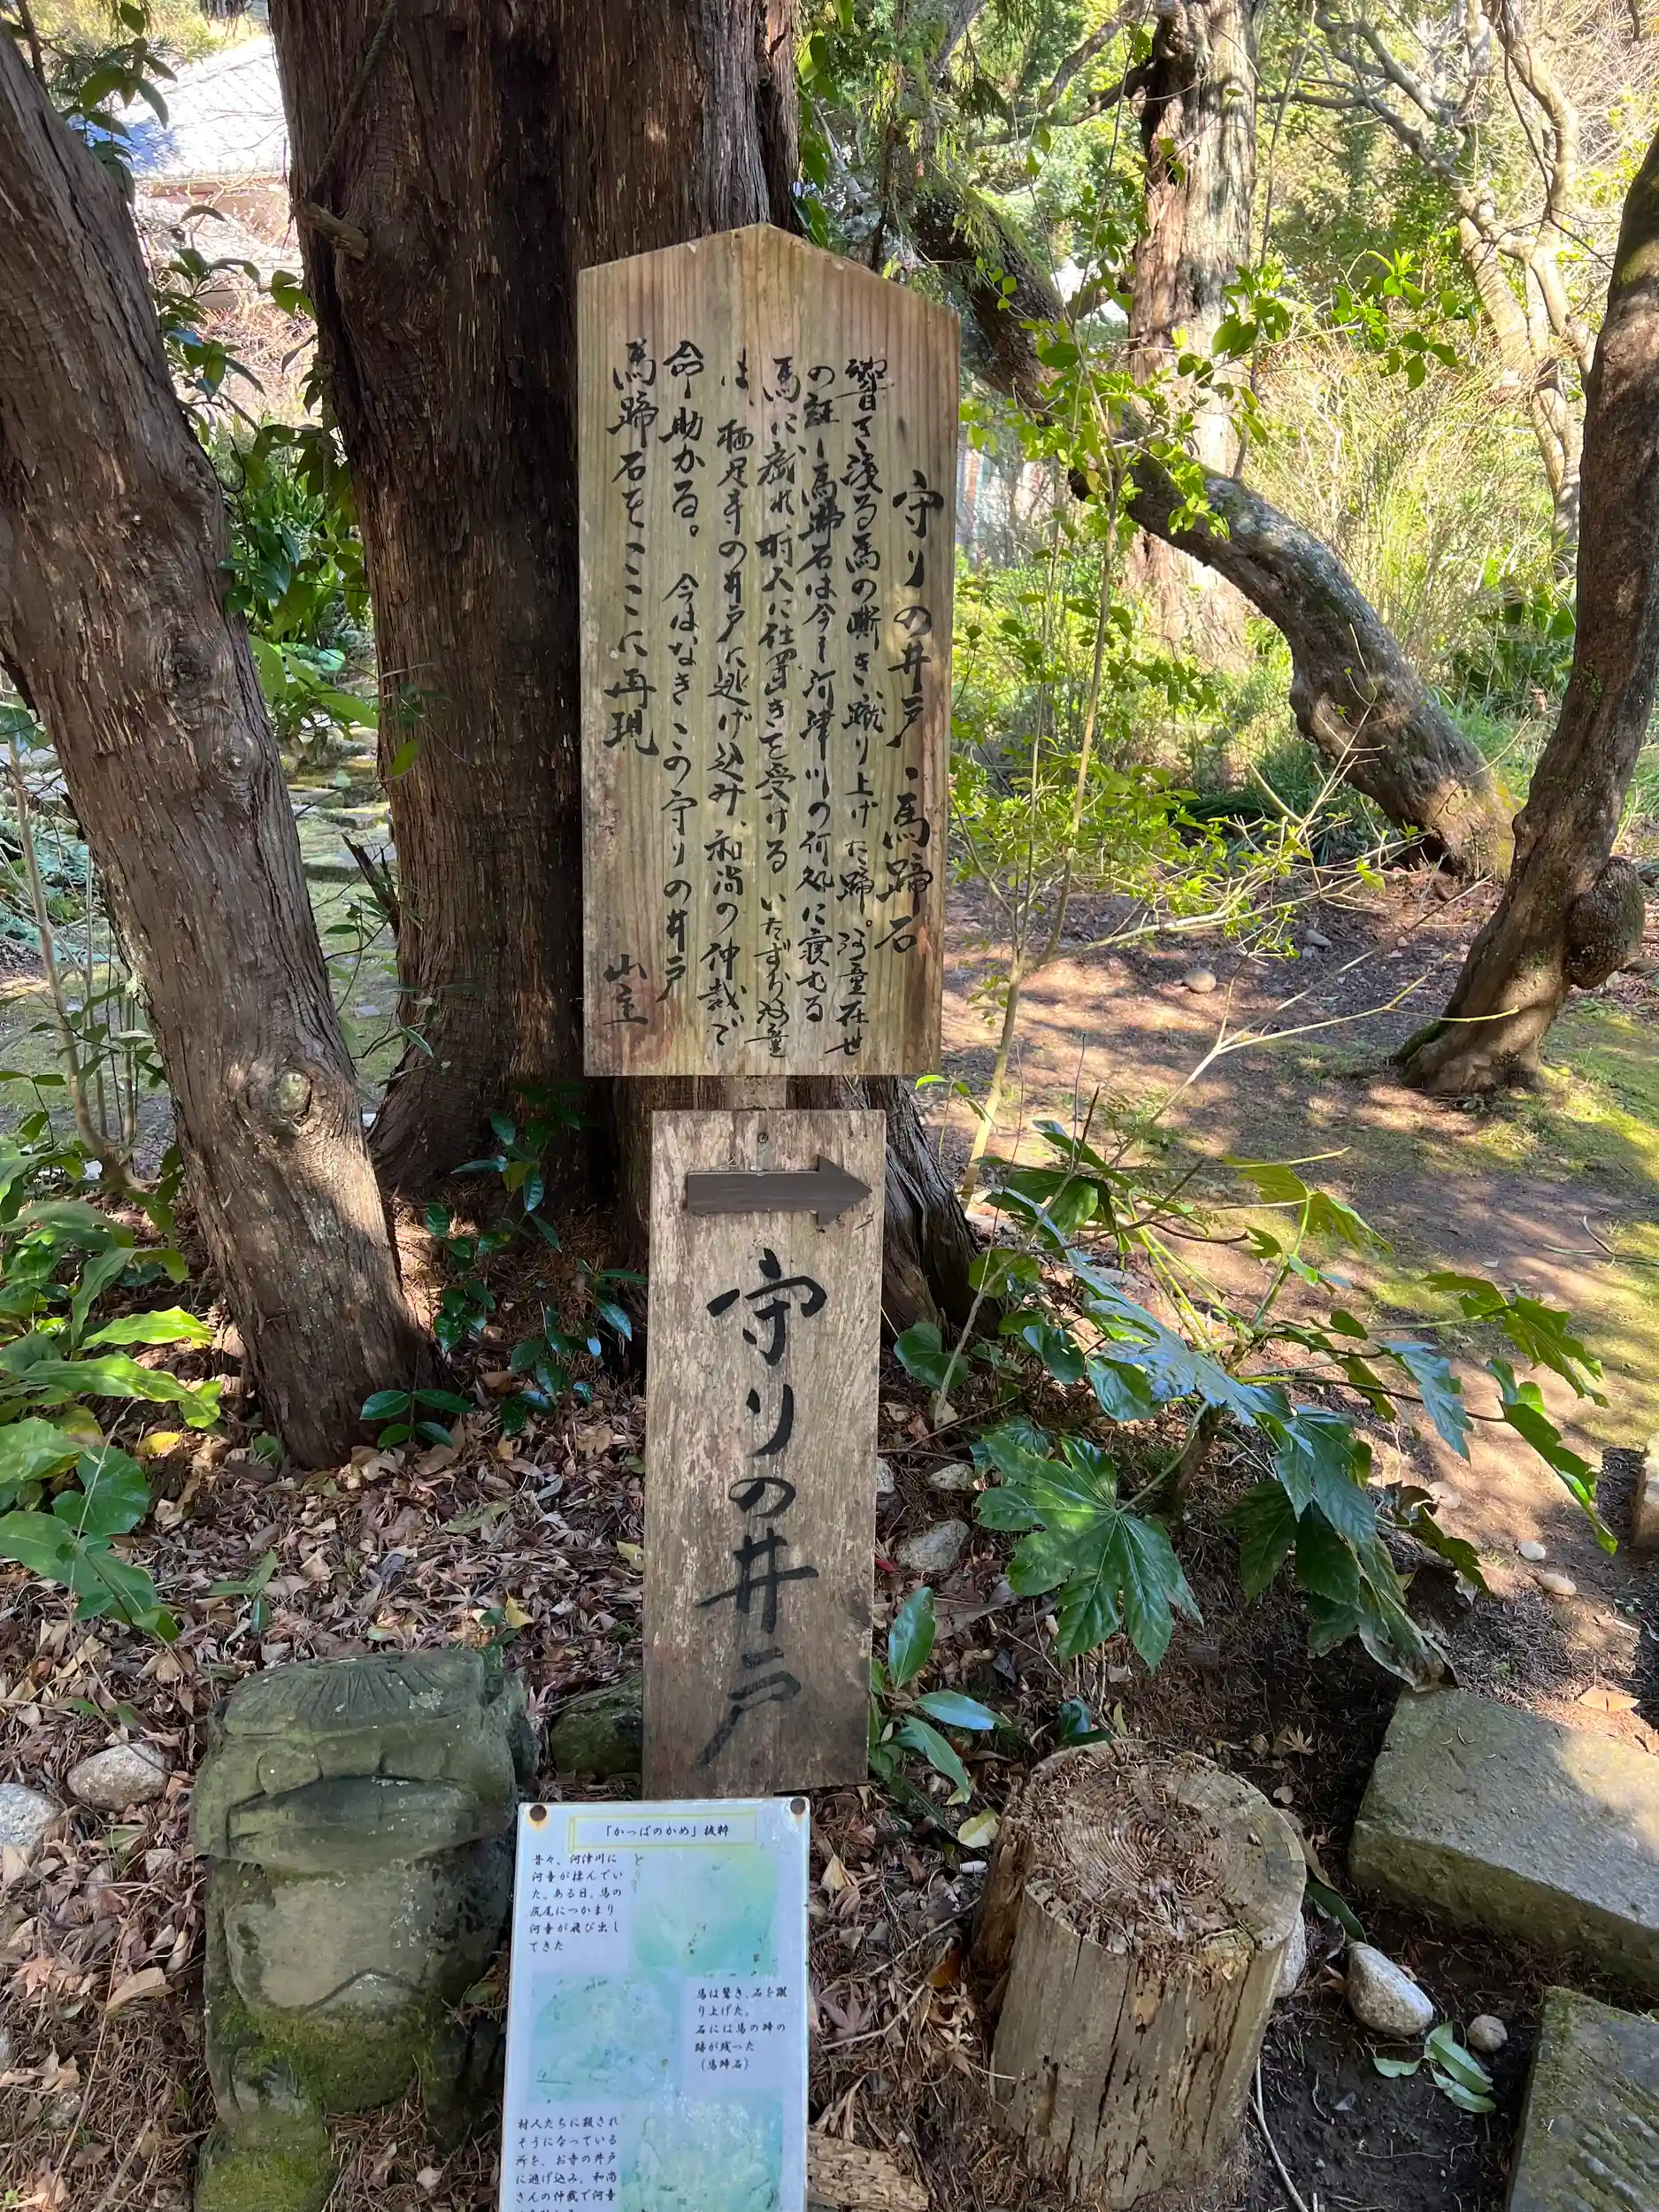 守りの井戸・馬蹄石
響き渡る馬の嘶き、蹴り上げた蹄。河童在世
の証し馬蹄石は今も河津川の何処に寝むる
馬に戯れ、村人に仕置きを受ける いたずら河童
は、栖足寺の井戸に逃げ込み、和尚の仲裁で
命助かる。 今はなきこの守りの井戸
馬蹄石をここに再現
山主
守りの井戸
「かっぱのかめ」抜粋
昔々、河津川に
河童が棲んでい
た。ある日、馬の
尻尾につかまり
河童が飛び出し
てきた
馬は驚き、石を蹴
り上げた。
石には馬の蹄の
跡が残った
(馬蹄石)
村人たちに殺され
そうになっている
所を、お寺の井戸
に逃げ込み、和尚
さんの仲裁で河童